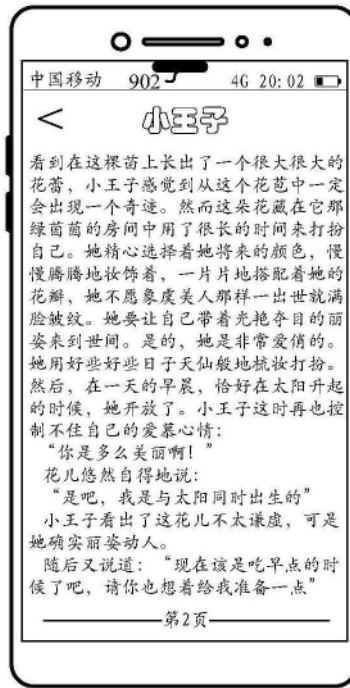 中国移动 902 4G 20:02
< 小王子
看到在这棵苗上长出了一个很大很大的
花蕾，小王子感觉到从这个花苞中一定
会出现一个奇迹。然而这朵花藏在它那
绿茵茵的房间中用了很长的时间来打扮
自己。她精心选择着她将来的颜色，慢
慢腾腾地妆饰着，一片片地搭配着她的
花瓣，她不愿象虞美人那样一出世就满
脸皱纹。她要让自己带着光艳夺目的丽
姿来到世间。是的，她是非常爱俏的。
她用好些好些日子天仙般地梳妆打扮。
然后，在一天的早晨，恰好在太阳升起
的时候，她开放了。小王子这时再也控
制不住自己的爱慕心情：
“你是多么美丽啊！”
花儿悠然自得地说：
“是吧，我是与太阳同时出生的”
小王子看出了这花儿不太谦虚，可是
她确实丽姿动人。
随后又说道：“现在该是吃早点的时
候了吧，请你也想着给我准备一点”
第2页